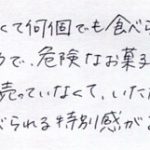 くて何個でも食べら
で、危険なお菓子
売っていなくて、いただ
べられる特別感が